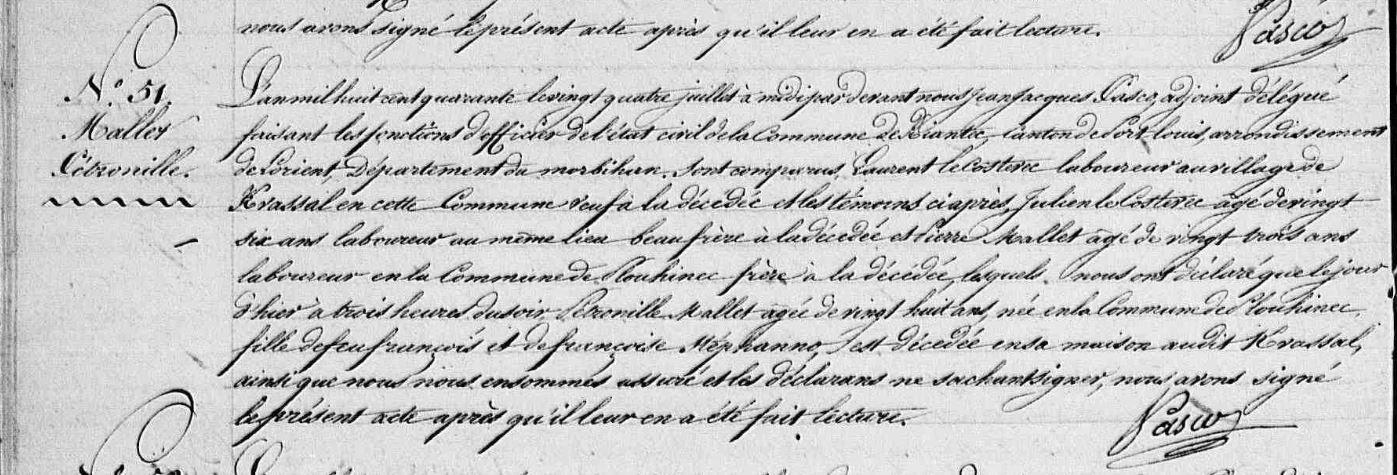 nous avons signé le présent acte après qu'il leur en a été fait lecture.
Pasco
N.º 51
Mallet
Pétronille.
L'an mil huit cent quarante le vingt quatre juillet à midi par devant nous Jean Jacques Pasco, adjoint délégué
faisant les fonctions d'officier de l'état civil de la Commune de Riantec, canton de Port louis, arrondissement
de Lorient, Département du morbihan. sont comparus, Laurent le Costevec laboureur au village de
Krassal en cette Commune veuf à la décédée et les témoins ci après, Julien le Costevec âgé de vingt
six ans laboureur au même lieu beau frère à la décédée et Pierre Mallet agé de vingt trois ans
laboureur en la Commune de Plouhinec frère à la décédée, lesquels nous ont déclaré que le jour
d'hier à trois heures du soir Pétronille Mallet agée de vingt huit ans, née en la Commune de Plouhinec,
fille de feu françois et de françoise Stéphanno, est décédée en sa maison audit Krassal,
ainsi que nous nous en sommes assuré et les déclarans ne sachant signer, nous avons signé
le présent acte après qu'il leur en a été fait lecture.
Pasco